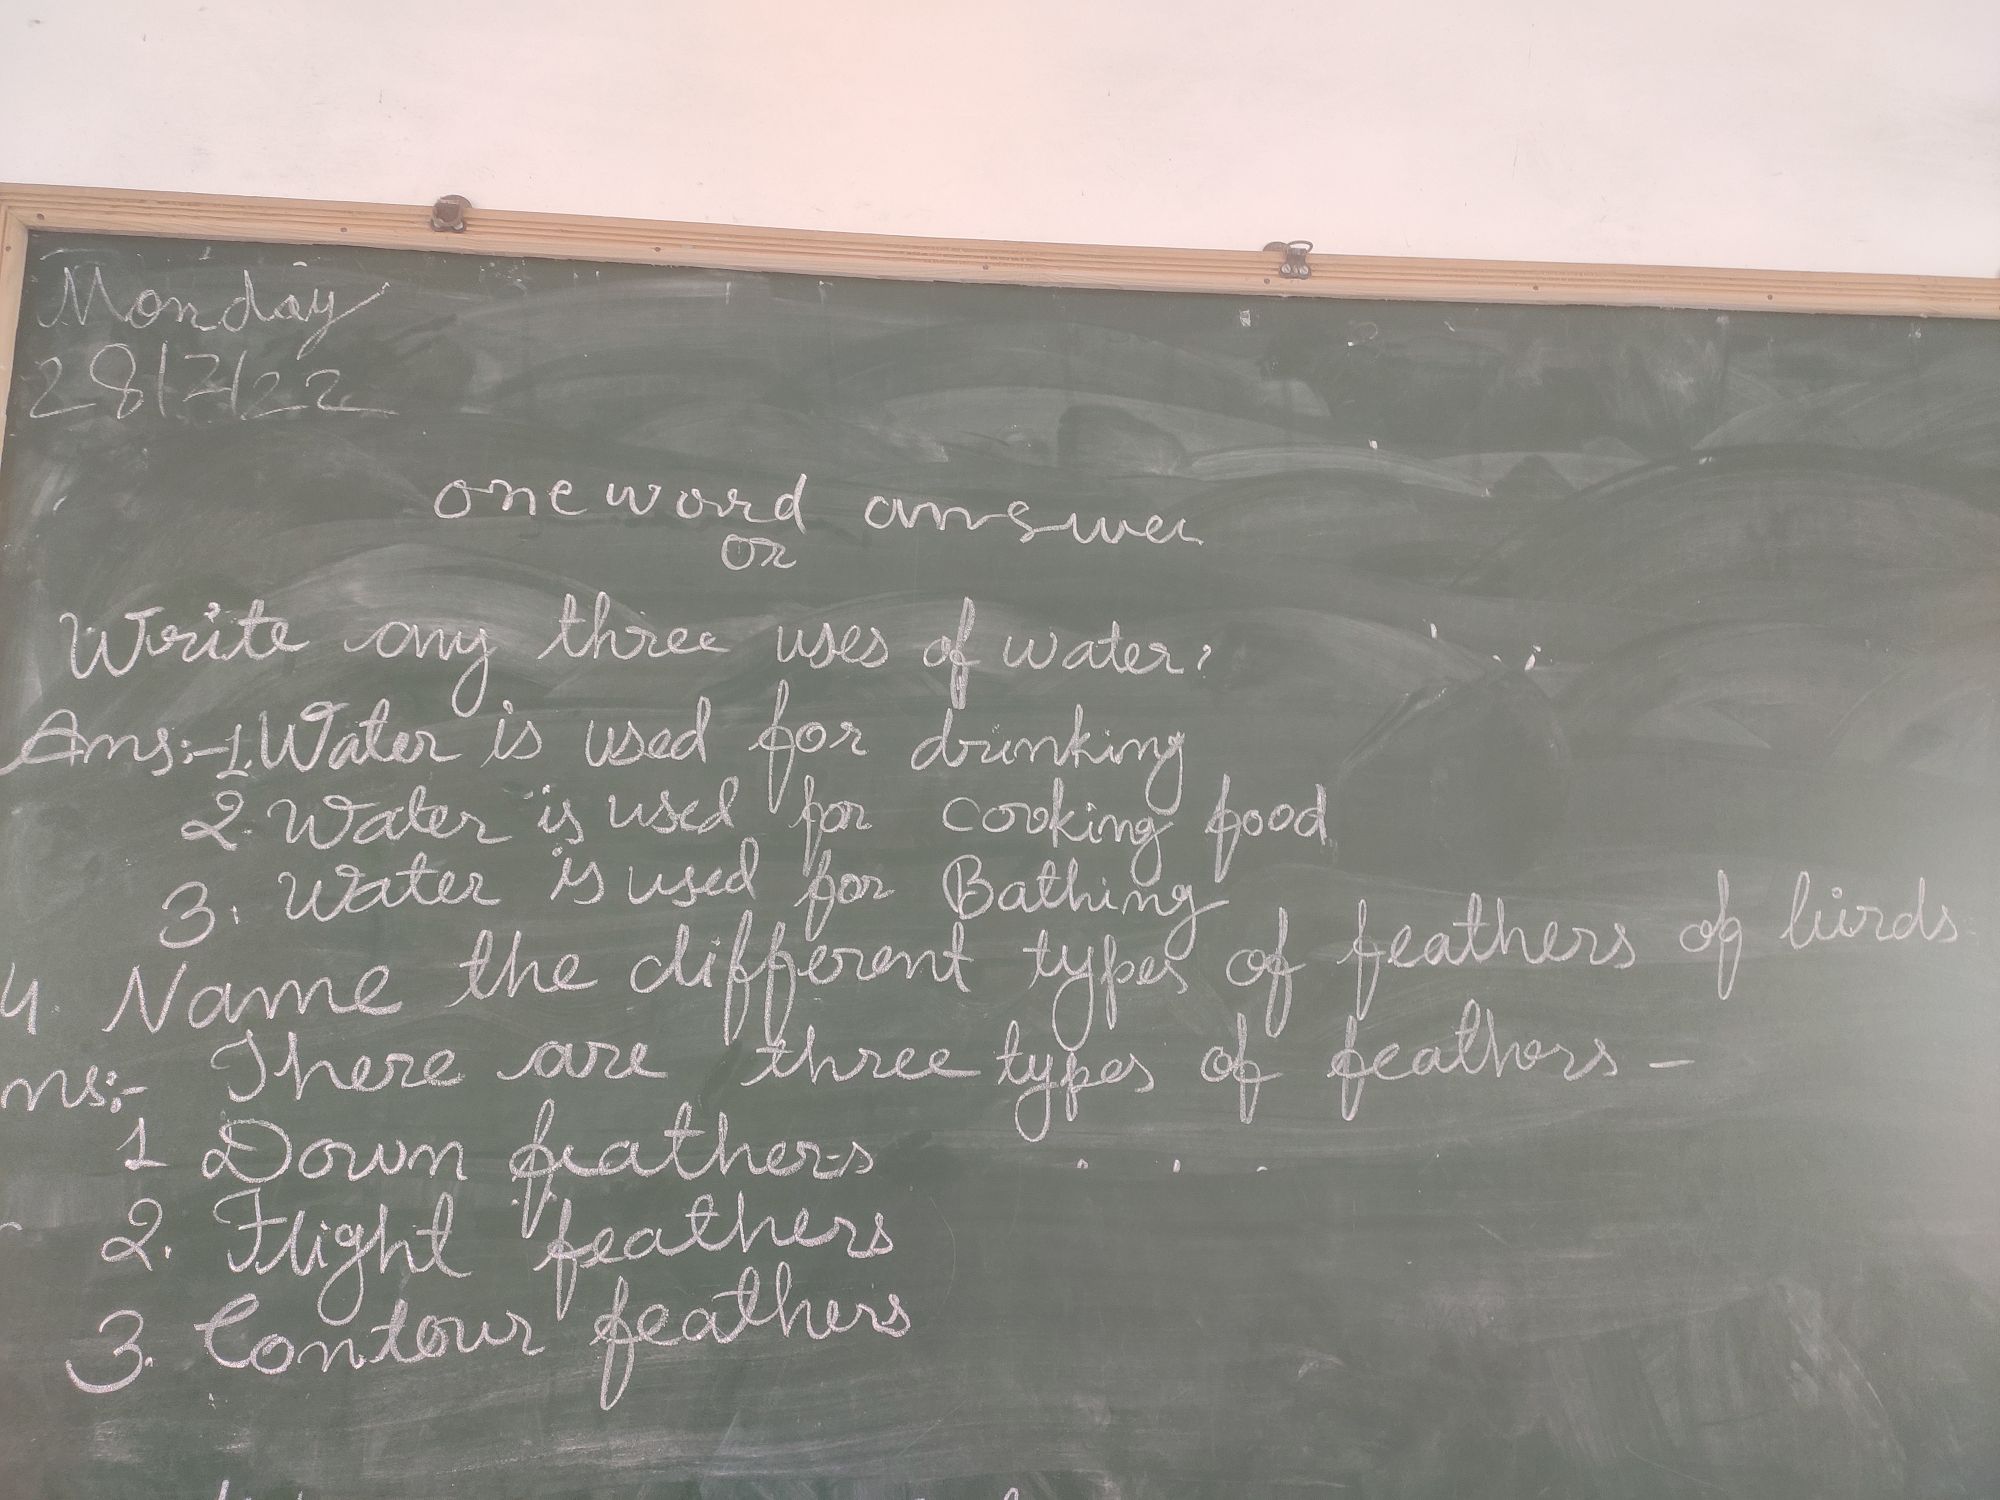 Monday
28/2/22
one word answer
or
Write any three uses of water?
Ans:-1. Water is used for drinking
2. Water is used for cooking food
3. Water is used for Bathing
4 Name the different types of feathers of birds
ns:- There are three types of feathers -
1 Down feathers
2. Flight feathers
3. Contour feathers